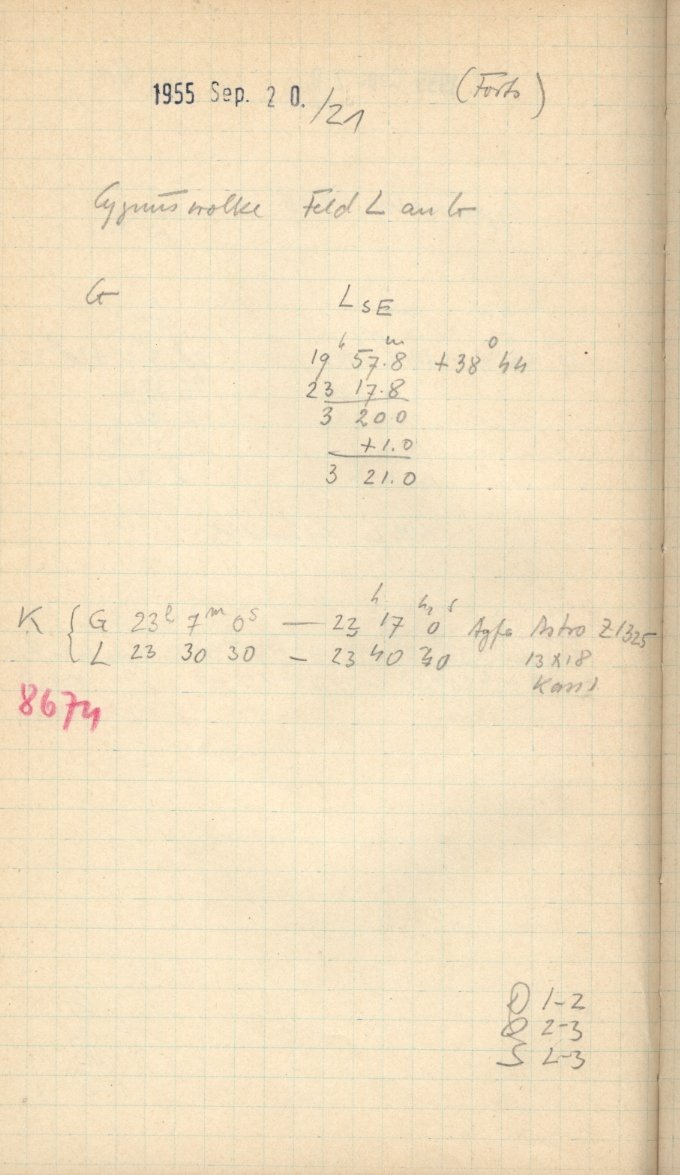 1955 Sep. 20./21 (Forts)
Cygnuswolke Feld L an G
G LSE
19h 57m.8 +38° 44
23 17.8
3 20 0
+1.0
3 21.0
K { G 23h 7m 0s — 23h 17m 0s Agfa Astro Z1325
L 23 30 30 – 23 40 40 13x18
8674
D 1-2
2-3
S 2-3